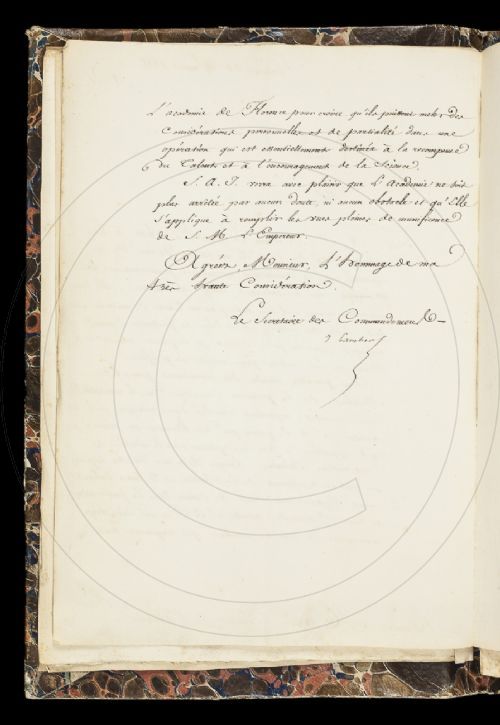 L'académie de Florence pour croire qu'ils puissent mettre des
Considérations personnelles et de partialité dans une
opération qui est essentiellement destinée à la recompense
du Talent et à l'encouragement de la Science.
S. A. I. verra avec plaisir que L'Académie ne soit
plus arrêtée par aucun doute, ni aucun obstacle et qu'Elle
s'applique à remplir les vues pleines de munificence
de S. M. L'Empereur.
Agréez, Monsieur, L'hommage de ma
très haute Considération.
Le Secrétaire des Commandemens